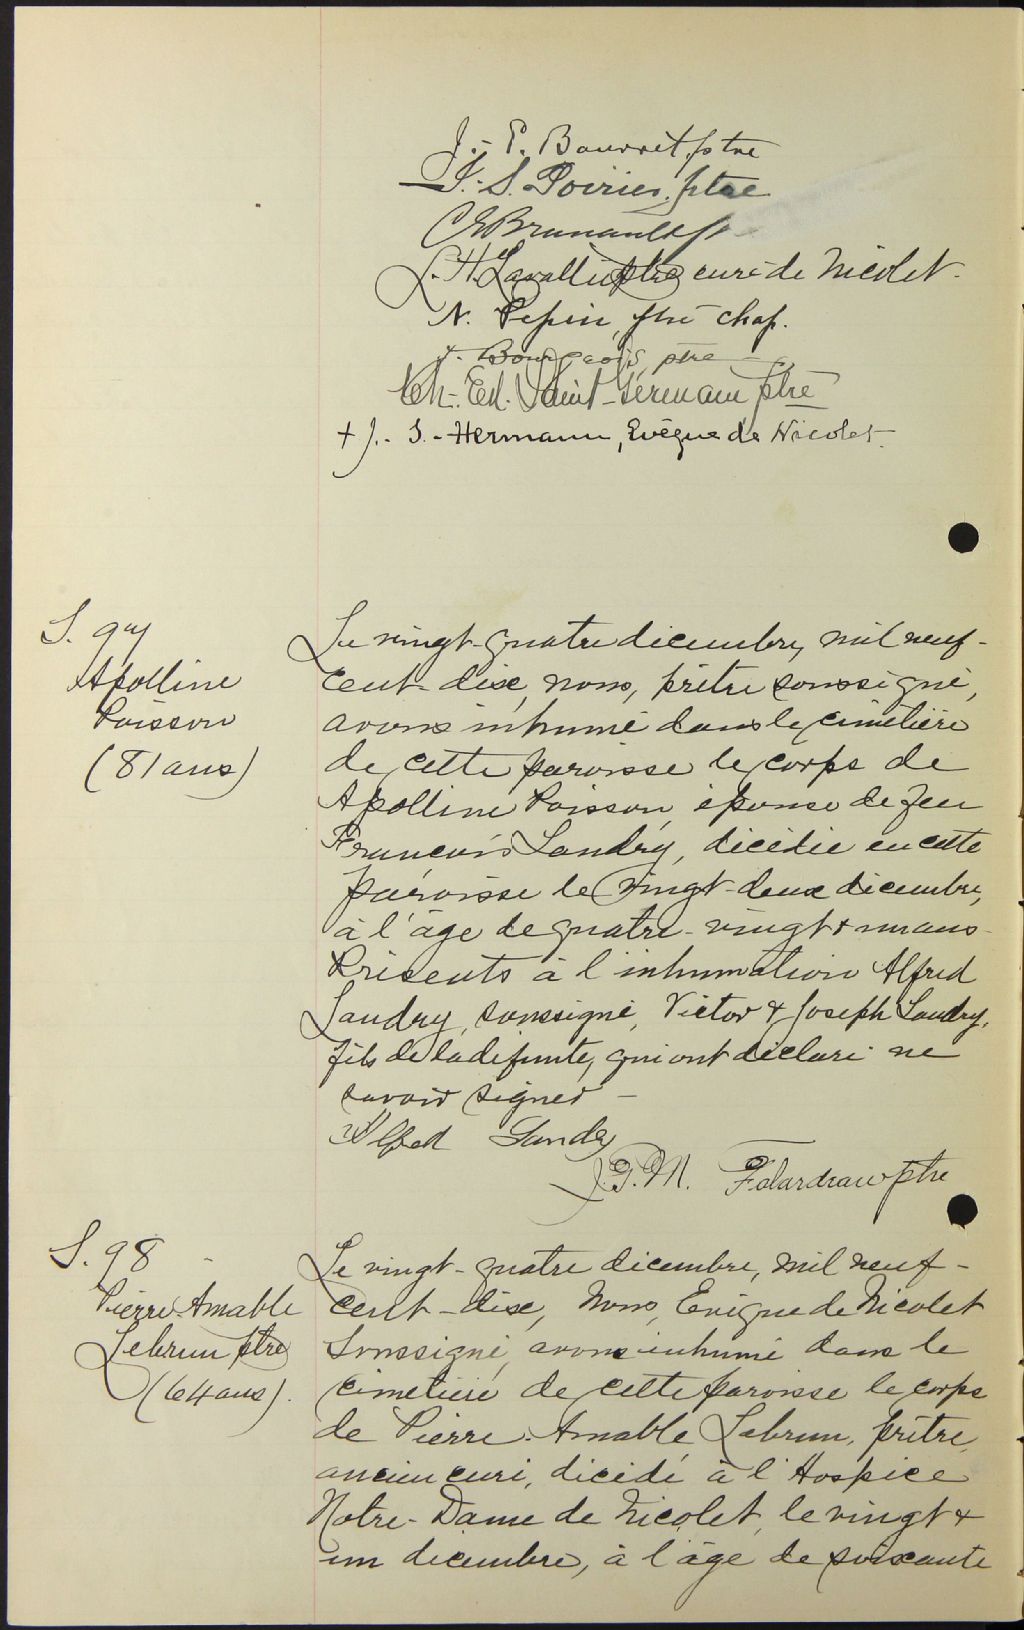 J.-E. Bourret, ptre
J.-S. Poirier, ptre
C E Brunault p
L. H. Lavallée ptre curé de Nicolet.
N. Pepin, ptre chap.
Bourgeois, ptre
Ch. Ed. Saint-Germain ptre
+ J.-S.-Hermann, Evêque de Nicolet.
S. 97
Apolline
Poisson
(81 ans)
Le vingt-quatre décembre, mil neuf-
cent-dix, nous, prêtre soussigné,
avons inhumé dans le cimetière
de cette paroisse le corps de
Apolline Poisson, épouse de feu
François Landry, décédée en cette
paroisse le vingt-deux décembre,
à l'âge de quatre-vingt & un ans
Présents à l'inhumation Alfred
Landry, soussigné, Victor & Joseph Landry,
fils de la défunte, qui ont déclaré ne
savoir signer –
Alfred Landry
J. G. M. ptre
S. 98
Pierre Amable
Lebrun ptre
(64 ans).
Le vingt-quatre décembre, mil neuf-
cent-dix, Nous, Evêque de Nicolet
Soussigné, avons inhumé dans le
cimetière de cette paroisse le corps
de Pierre Amable Lebrun, prêtre,
ancien curé, décédé à l'Hospice
Notre-Dame de Nicolet, le vingt &
un décembre, à l'âge de soixante